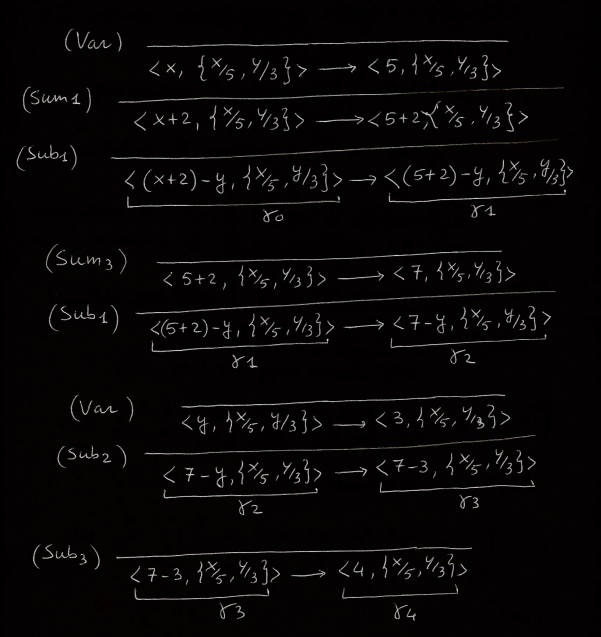 (Var)
<x, {x/5, y/3}> → <5, {x/5, y/3}>
(Sum1)
<x+2, {x/5, y/3}> → <5+2, {x/5, y/3}>
(Sub1)
<(x+2)-y, {x/5, y/3}> → <(5+2)-y, {x/5, y/3}>
γ0 γ1
(Sum3)
<5+2, {x/5, y/3}> → <7, {x/5, y/3}>
(Sub1)
<(5+2)-y, {x/5, y/3}> → <7-y, {x/5, y/3}>
γ1 γ2
(Var)
<y, {x/5, y/3}> → <3, {x/5, y/3}>
(Sub2)
<7-y, {x/5, y/3}> → <7-3, {x/5, y/3}>
γ2 γ3
(Sub3)
<7-3, {x/5, y/3}> → <4, {x/5, y/3}>
γ3 γ4